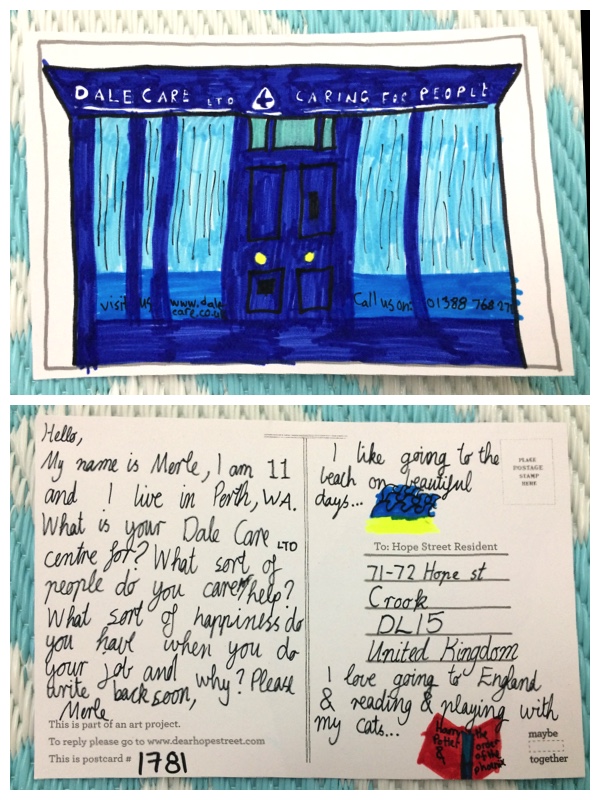 DALE CARE LTD CARING FOR PEOPLE
visit us www.dale
care.co.uk
Call us on: 01388 768 27
Hello,
My name is Merle, I am 11
and I live in Perth, WA.
What is your Dale Care LTD
centre for? What sort of
people do you care/help?
What sort of happiness do
you have when you do
your job and why? Please
write back soon,
Merle
This is part of an art project.
To reply please go to www.dearhopestreet.com
This is postcard # 1781
I like going to the
beach on beautiful
days...
PLACE
POSTAGE
STAMP
HERE
To: Hope Street Resident
71-72 Hope st
Crook
DL15
United Kingdom
I love going to England
& reading & playing with
my cats...
Harry
Potter
&
the
order
of the
phoenix
maybe
together